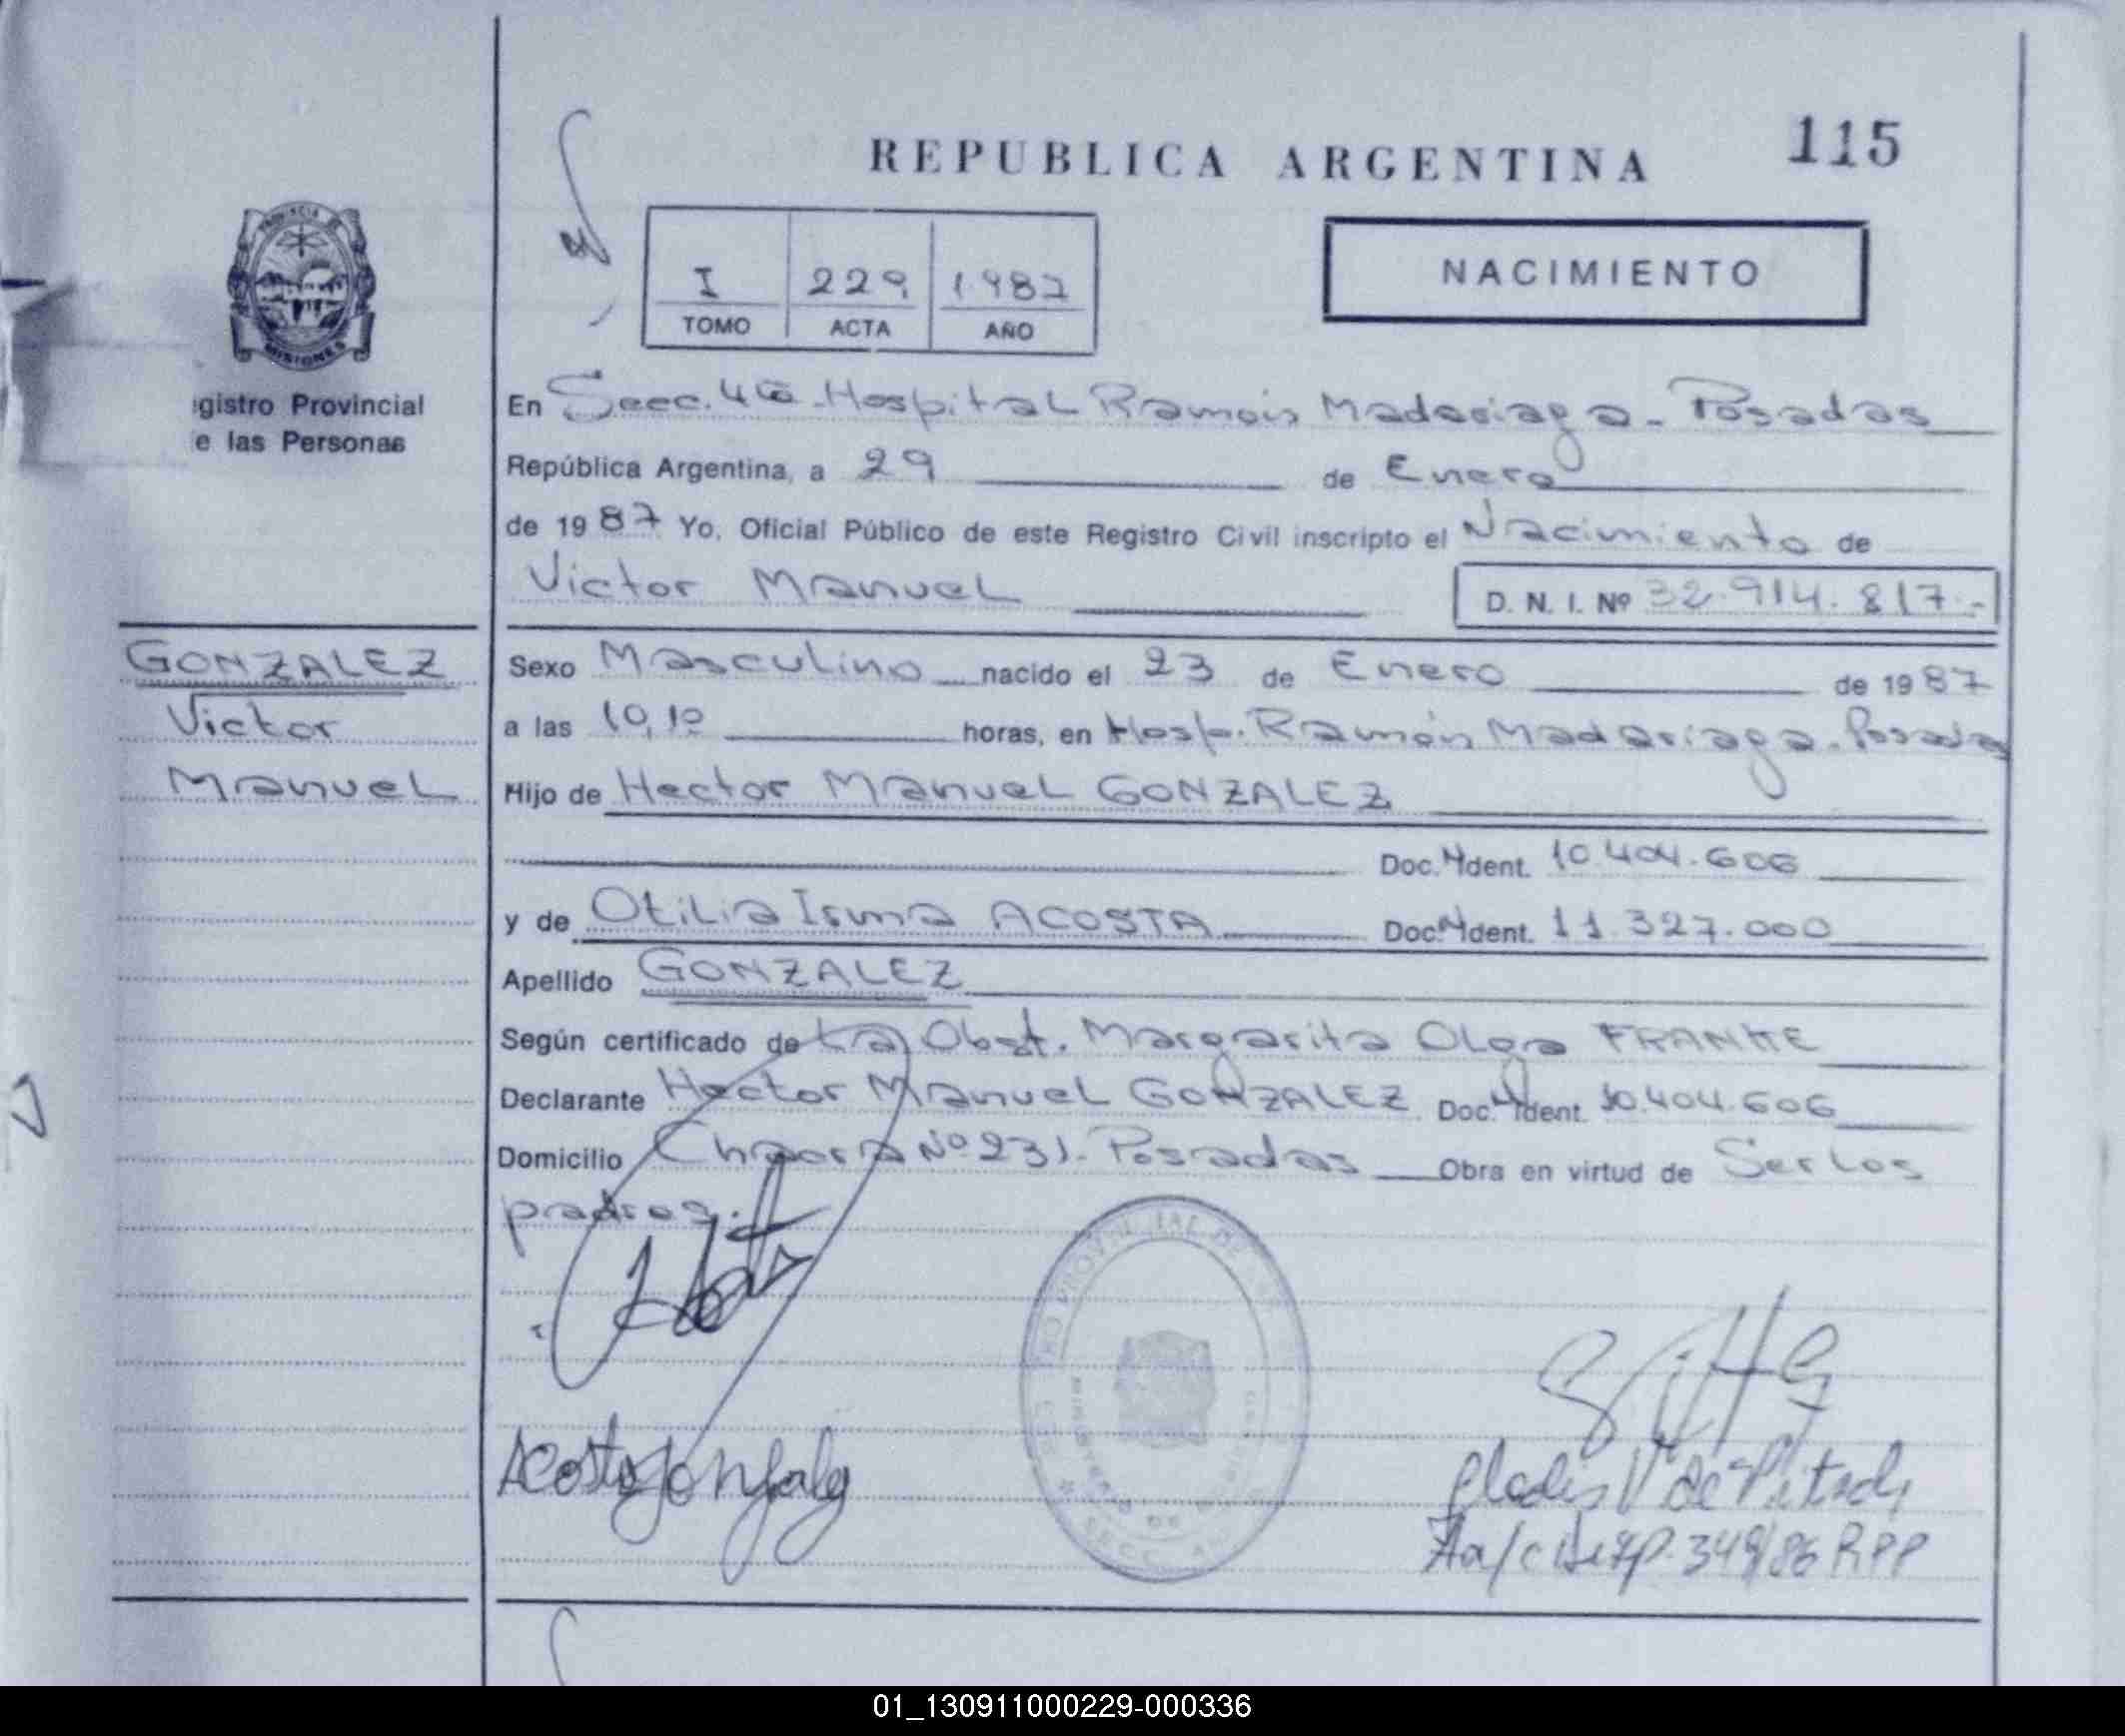 REPUBLICA ARGENTINA
115
I 229 1987
TOMO ACTA AÑO
NACIMIENTO
PROVINCIA DE
MISIONES
gistro Provincial
e las Personas
En Secc. 4ta - Hospital Ramón Madariaga - Posadas
República Argentina, a 29 de Enero
de 1987 Yo, Oficial Público de este Registro Civil inscripto el Nacimiento de
Victor Manuel
D. N. I. Nº 32.914.817.-
GONZALEZ
Victor
Manuel
Sexo Masculino nacido el 23 de Enero de 1987
a las 10,10 horas, en Hosp. Ramón Madariaga - Posadas
Hijo de Hector Manuel GONZALEZ
Doc. Ident. 10.404.606
y de Otilia Irma ACOSTA Doc. Ident. 11.327.000
Apellido GONZALEZ
Según certificado de La Obst. Margarita Olga FRANKE
Declarante Hector Manuel GONZALEZ Doc. Ident. 10.404.606
Domicilio Chacra Nº 231 - Posadas Obra en virtud de Ser los
padres.
Acosta
349/86 RPP
01_130911000229-000336